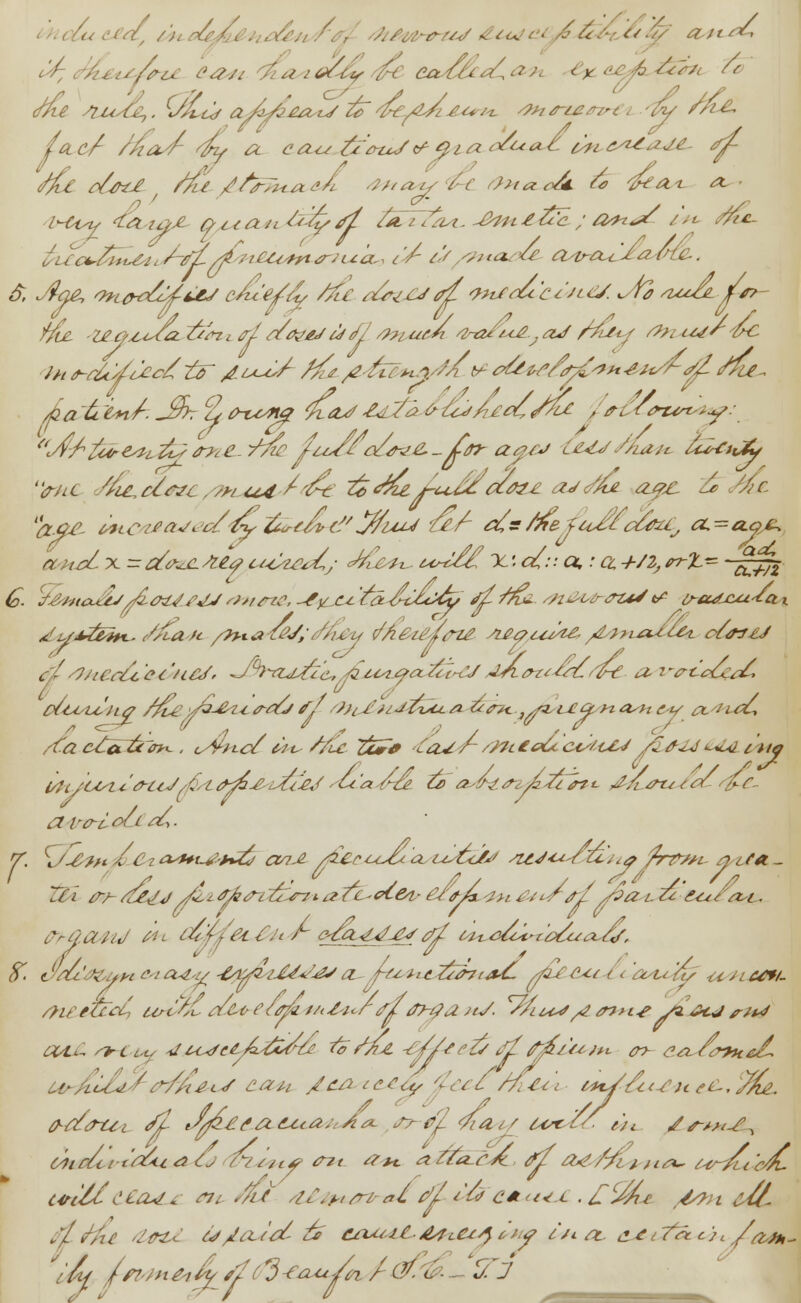 induced, independent of nervous susceptibility and,
it, therefore can hardly be called, an exception to
the rule,. This appears to be shewn moreover by the
fact that by a cautious & gradual increase of
the dose, the stomach may be made to bear a
very large quantity of tartar emetic; and in the
treatment of pneumonia, it is made available.
5. Age, modifies chiefly the doses of medicines. No rule for
the regulation of doses is of much value, as they must be
modified to suit the strength & development of the
patient. Dr. Young has established, the following:
"At twenty one the full dose - for ages less than twenty
"one the dose must be to the full dose as the age to the
"age increased by twelve" Thus let d = the full dose, a. = age,
and x = dose required,; then will x : d :: a : a + 12, or x = ad/a+12
6. Females possess more, excitability of the nervous & vascular
system than males; they therefore require smaller doses
of medicines. Drastic, purgatives should be avoided,
during the periods of menstruation, pregnancy and,
lactation. And in the two last medicines possessing
injurious properties liable to absorption should be
avoided,.
7. Temperaments are peculiarities resulting from grea-
ter or less proportionate development of particular
organs in different classes of individuals.
8. Idiosyncrasy expresses a functional peculiarity uncon-
nected, with development of organs. Thus some persons
are very susceptible to the effects of opium or calomel
whilst others can scarcely feel their influence. The
odour of Ipecacuanha or of hay will in some,
individuals bring on an attack of asthma which
will cease on the removal of its cause. [The smell
of the rose is said to cause sneezing in a certain fam-
ily formerly of Beaufort S. C. _ T. ]